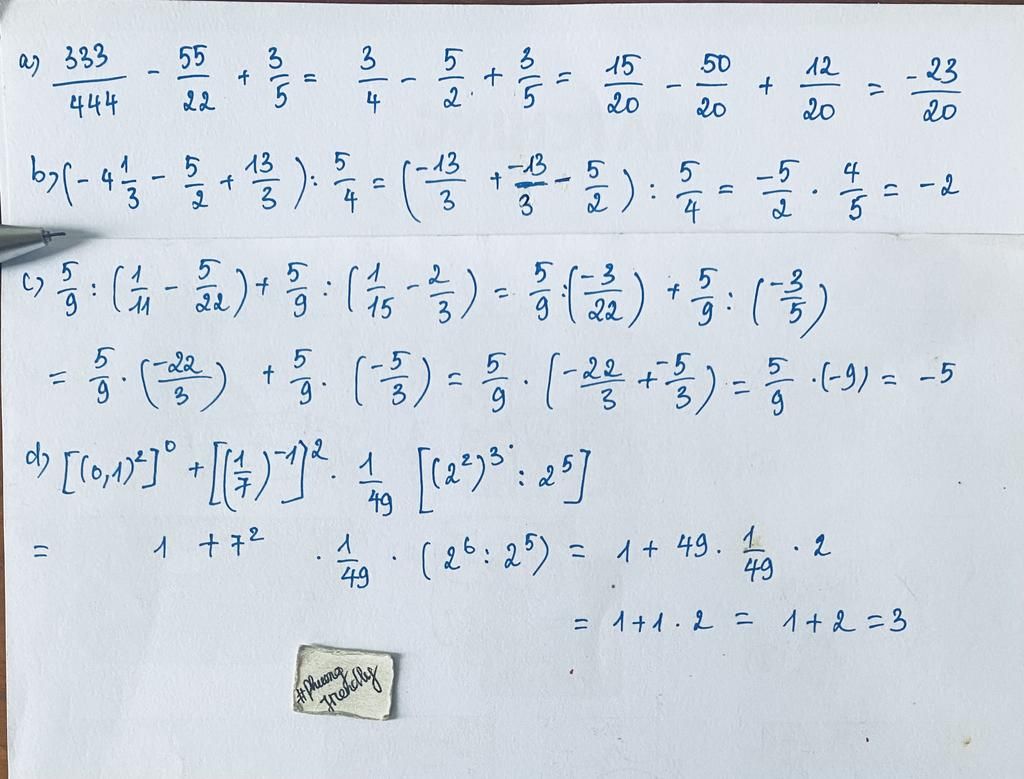 a) 333/444 - 55/22 + 3/5 = 3/4 - 5/2 + 3/5 = 15/20 - 50/20 + 12/20 = -23/20
b) (-4 1/3 - 5/2 + 13/3) : 5/4 = (-13/3 + -13/3 - 5/2) : 5/4 = -5/2 . 4/5 = -2
c) 5/9 : (1/11 - 5/22) + 5/9 : (1/15 - 2/3) = 5/9 : (-3/22) + 5/9 : (-3/5)
= 5/9 . (-22/3) + 5/9 . (-5/3) = 5/9 . (-22/3 + -5/3) = 5/9 . (-9) = -5
d) [(0,1)²]⁰ + [(1/7)⁻¹]² . 1/49 [(2²)³ : 2⁵]
= 1 + 7² . 1/49 . (2⁶ : 2⁵) = 1 + 49 . 1/49 . 2
= 1 + 1 . 2 = 1 + 2 = 3
#Phuong
friendly